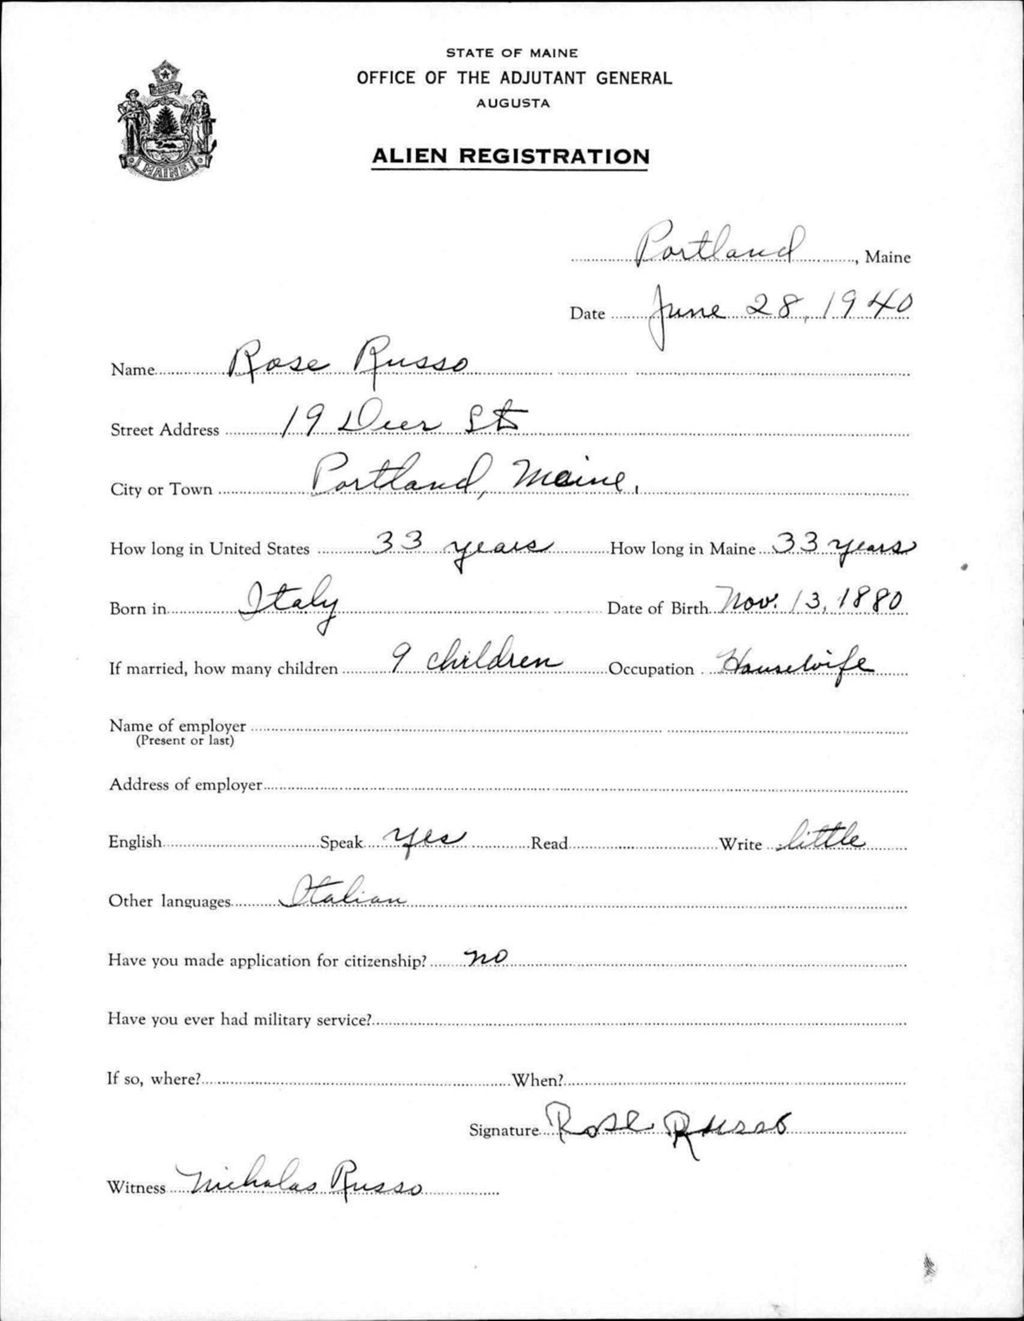 STATE OF MAINE
OFFICE OF THE ADJUTANT GENERAL
AUGUSTA
MAINE
ALIEN REGISTRATION
Portland, Maine
Date June 28, 1940
Name Rose Russo
Street Address 19 Deer St
City or Town Portland, Maine.
How long in United States 33 years How long in Maine 33 years
Born in Italy Date of Birth Nov. 13, 1880
If married, how many children 9 children Occupation Housewife
Name of employer
(Present or last)
Address of employer
English Speak yes Read Write little
Other languages Italian
Have you made application for citizenship? no
Have you ever had military service?
If so, where? When?
Signature Rose Russo
Witness Nicholas Russo